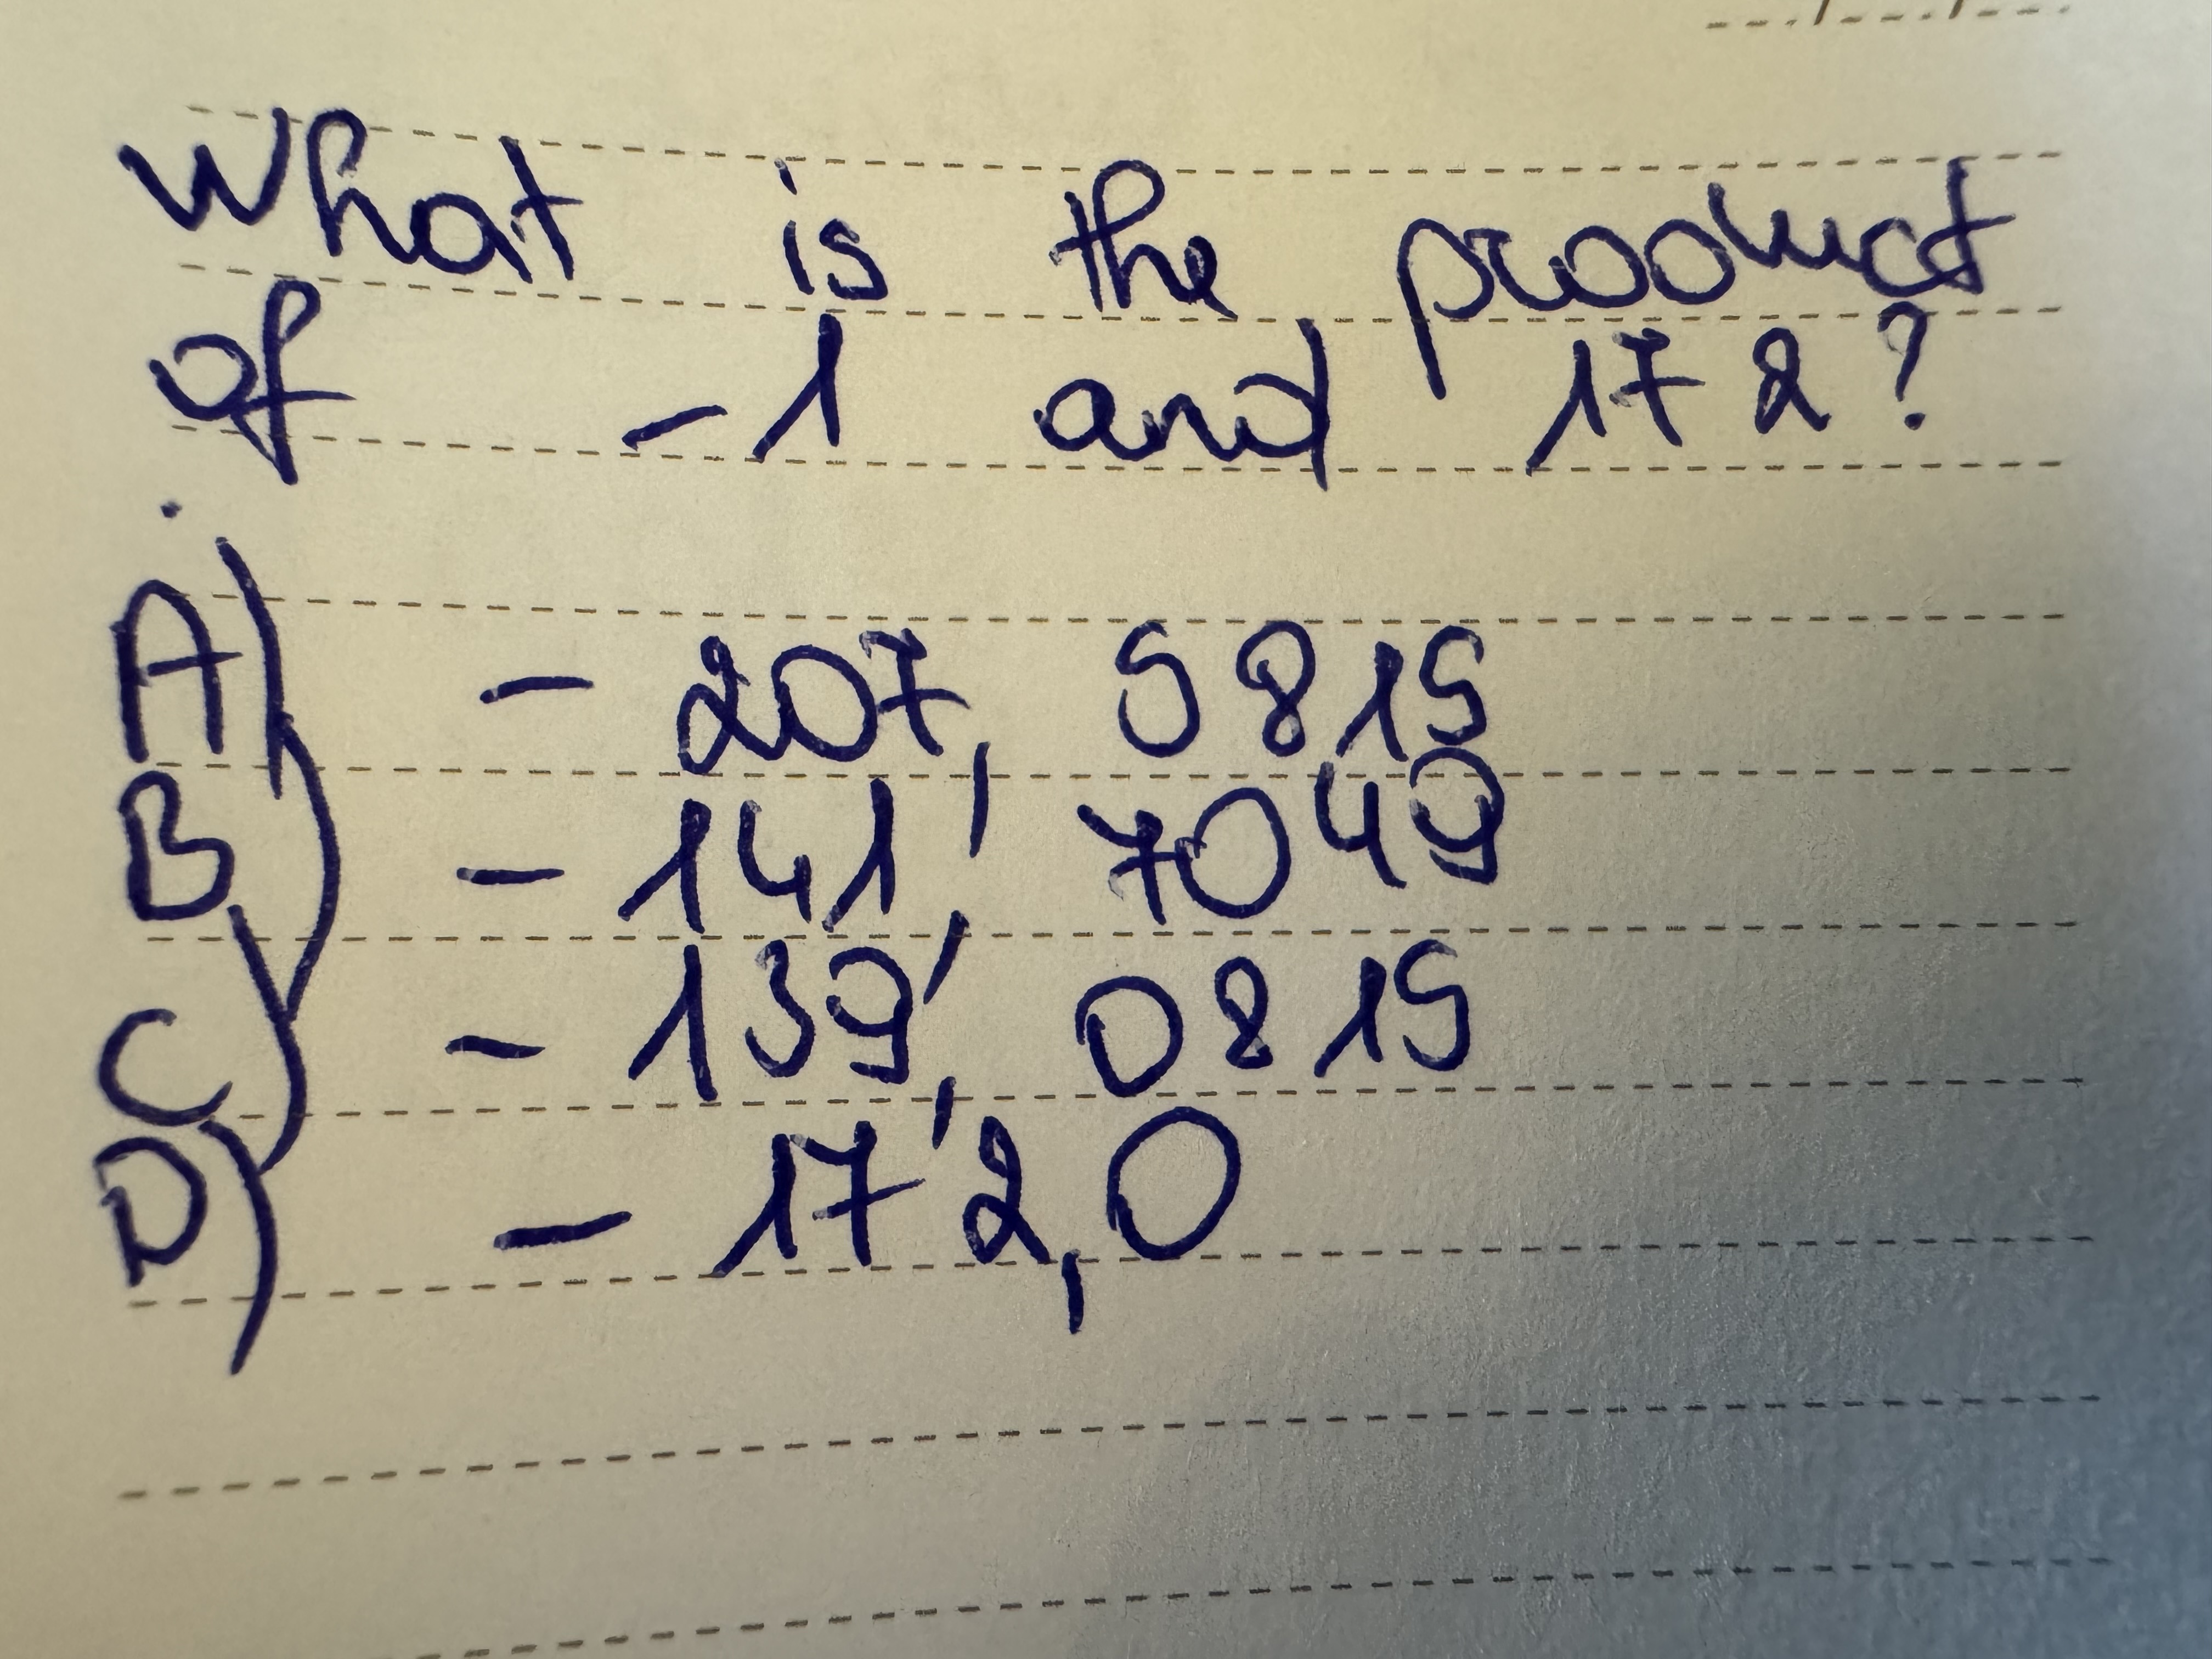 What is the product
of -1 and 172?
A) - 207, 5815
B) - 141, 7049
C) - 139, 0815
D) - 172,0